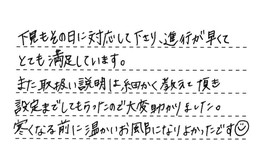 下見もその日に対応して下さり、進行が早くて
とても満足しています。
また取扱い説明は細かく教えて頂き
設定までしてもらったので大変助かりました。
寒くなる前に温かいお風呂になりよかったです☺